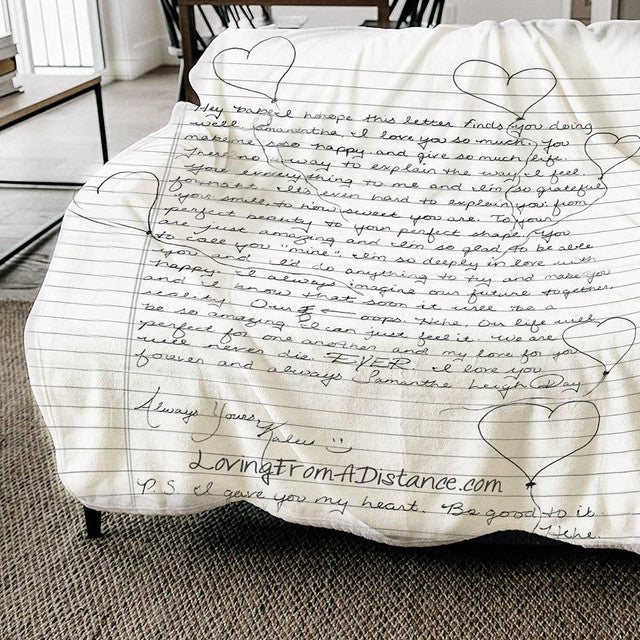 Hey babe, I hope this letter finds you doing
well Samantha. I love you so much. You
make me so happy and give so much life.
There no way to explain the way I feel.
You everything to me and I'm so grateful
for that. It's even hard to explain you from
your smile to how sweet you are. To your
perfect beauty to your perfect shape. You
are just amazing and I'm so glad to be able
to call you "mine". I'm so deeply in love with
you and I'd do anything to try and make you
happy. I always imagine our future together.
and I know that soon it will be a
reality. Our oops. Hehe. Our life will
be so amazing I can just feel it. We are
perfect for one another and my love for you
will never die EVER. I love you
forever and always Samantha Leigh Day
Always Yours,
Kaleb :)
LovingFromADistance.com
P.S. I gave you my heart. Be good to it
Hehe.